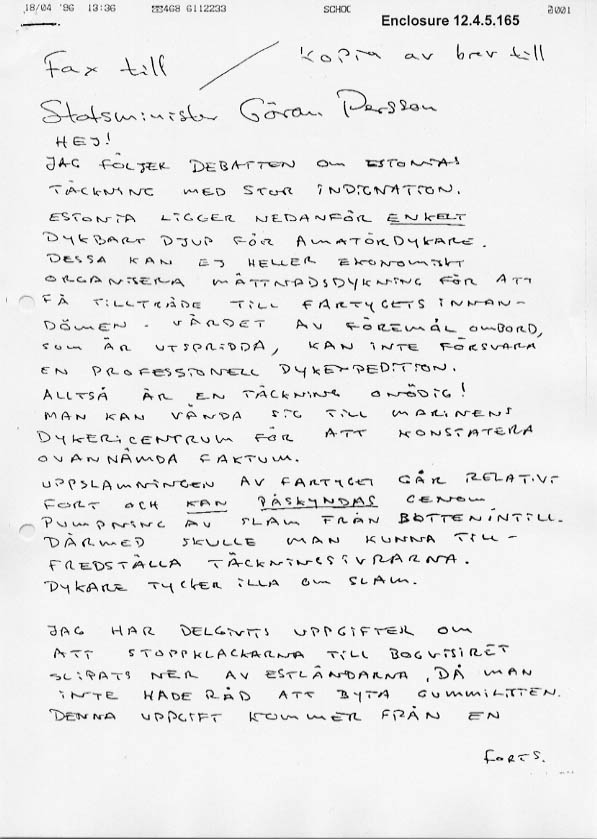 18/04 '96 13:36 468 6112233 SCHOC 001
Enclosure 12.4.5.165
Fax till / kopia av brev till
Statsminister Göran Persson
HEJ!
JAG FÖLJER DEBATTEN OM ESTONIAS
TÄCKNING MED STOR INDIGNATION.
ESTONIA LIGGER NEDANFÖR ENKELT
DYKBART DJUP FÖR AMATÖRDYKARE.
DESSA KAN EJ HELLER EKONOMISKT
ORGANISERA MÄTTNADSDYKNING FÖR ATT
FÅ TILLTRÄDE TILL FARTYGETS INNAN-
DÖMEN. VÄRDET AV FÖREMÅL OMBORD,
SOM ÄR UTSPRIDDA, KAN INTE FÖRSVARA
EN PROFESSIONELL DYKEXPEDITION.
ALLTSÅ ÄR EN TÄCKNING ONÖDIG!
MAN KAN VÄNDA SIG TILL MARINENS
DYKERICENTRUM FÖR ATT KONSTATERA
OVANNÄMDA FAKTUM.
UPPSLAMNINGEN AV FARTYGET GÅR RELATIVT
FORT OCH KAN PÅSKYNDAS GENOM
PUMPNING AV SLAM FRÅN BOTTEN INTILL.
DÄRMED SKULLE MAN KUNNA TILL-
FREDSTÄLLA TÄCKNINGSIVRARNA.
DYKARE TYCKER ILLA OM SLAM.
JAG HAR DELGIVITS UPPGIFTER OM
ATT STOPPKLACKARNA TILL BOGVISIRET
SLIPATS NER AV ESTLÄNDARNA, DÅ MAN
INTE HADE RÅD ATT BYTA GUMMILISTEN.
DENNA UPPGIFT KOMMER FRÅN EN
FORTS.